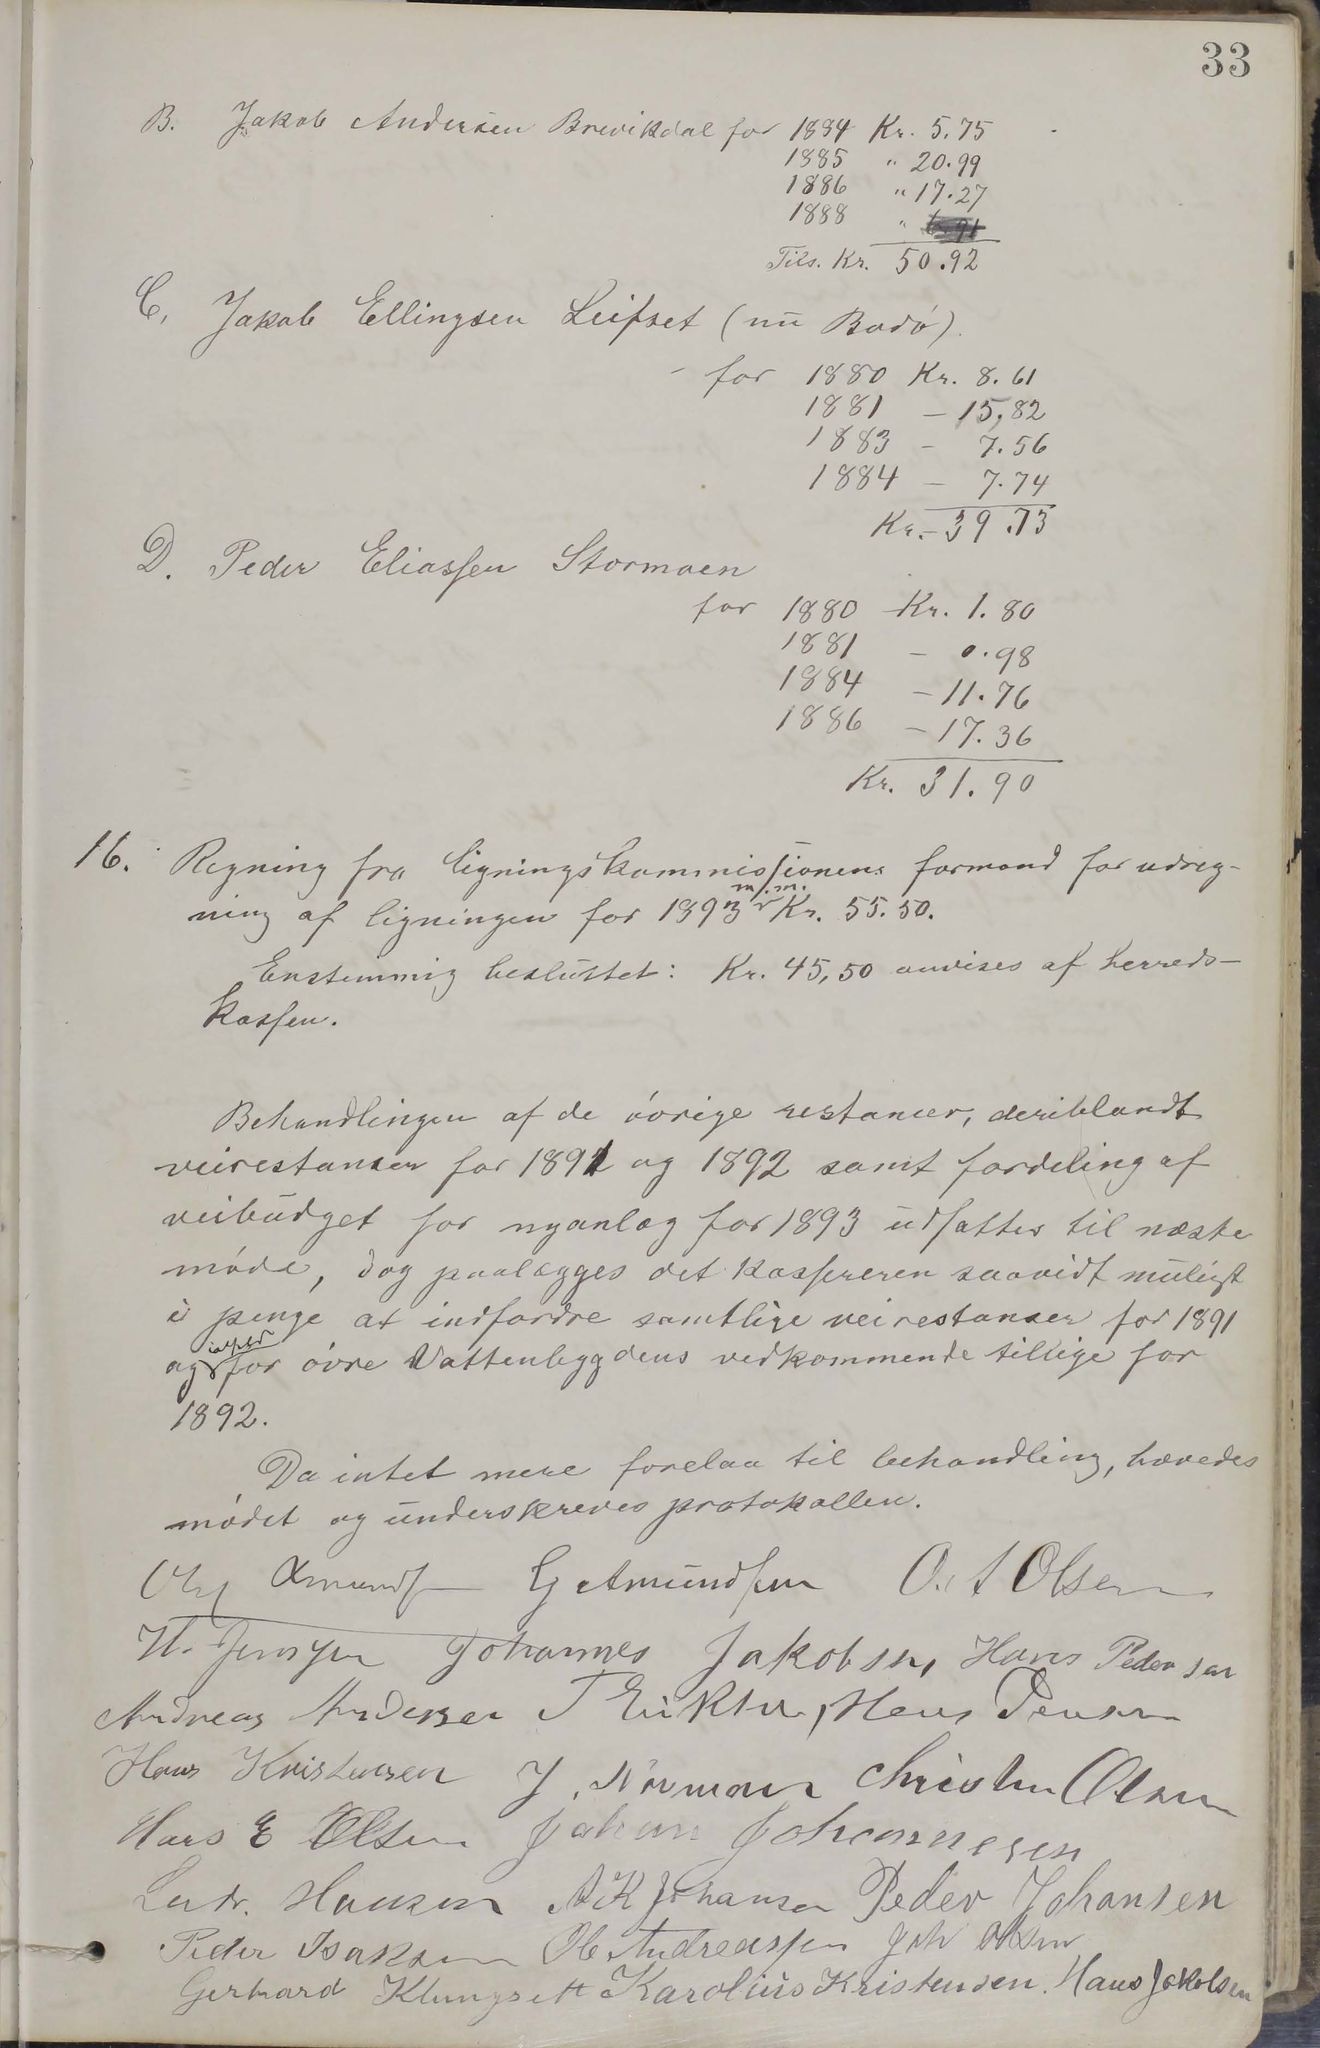 33
B. Jakob Andersen Brevikdal for 1884 Kr. 5.75
1885 " 20.99
1886 " 17.27
1888 " 6.91
Tils. Kr. 50.92
C, Jakob Ellingsen Leifset (nu Bodø).
for 1880 Kr. 8.61
1881 - 15,82
1883 - 7.56
1884 - 7.74
Kr. - 39.73
D. Peder Eliassen Stormoen
for 1880 Kr. 1.80
1881 - 0.98
1884 - 11.76
1886 - 17.36
Kr. 31.90
16. Regning fra ligningskommissionens formand for udreg-
m/.m.
ning af ligningen for 1893 Kr. 55.50.
Enstemmig besluttet: Kr. 45,50 anvises af herreds-
kassen.
Behandlingen af de øvrige restancer, deriblandt
veirestanser for 1891 og 1892 samt fordeling af
veibudget for nyanlæg for 1893 udsattes til næste
møde, dog paalægges det kassereren saavidt muligt
i penge at indfordre samtlige veirestanser for 1891
og for øvre Vattenbygdens vedkommende tillige for
1892.
Da intet mere forelaa til behandling, hævedes
mødet og underskreves protokollen.
Amunds G Amundsen O. A Olsen
H. Jensen Johannes Jakobsen, Hans Pedersen
Andreas Andersen Hans Pensen
Hans Kristensen J. Normann Christen Olsen
Hans E Olsen Johan Johannesen
Ludv. Hansen A K Johansen Peder Johansen
Peder Isaksen Ole Andreassen Joh Olsen
Gerhard Klungset Karolius Kristensen. Hans Jakobsen